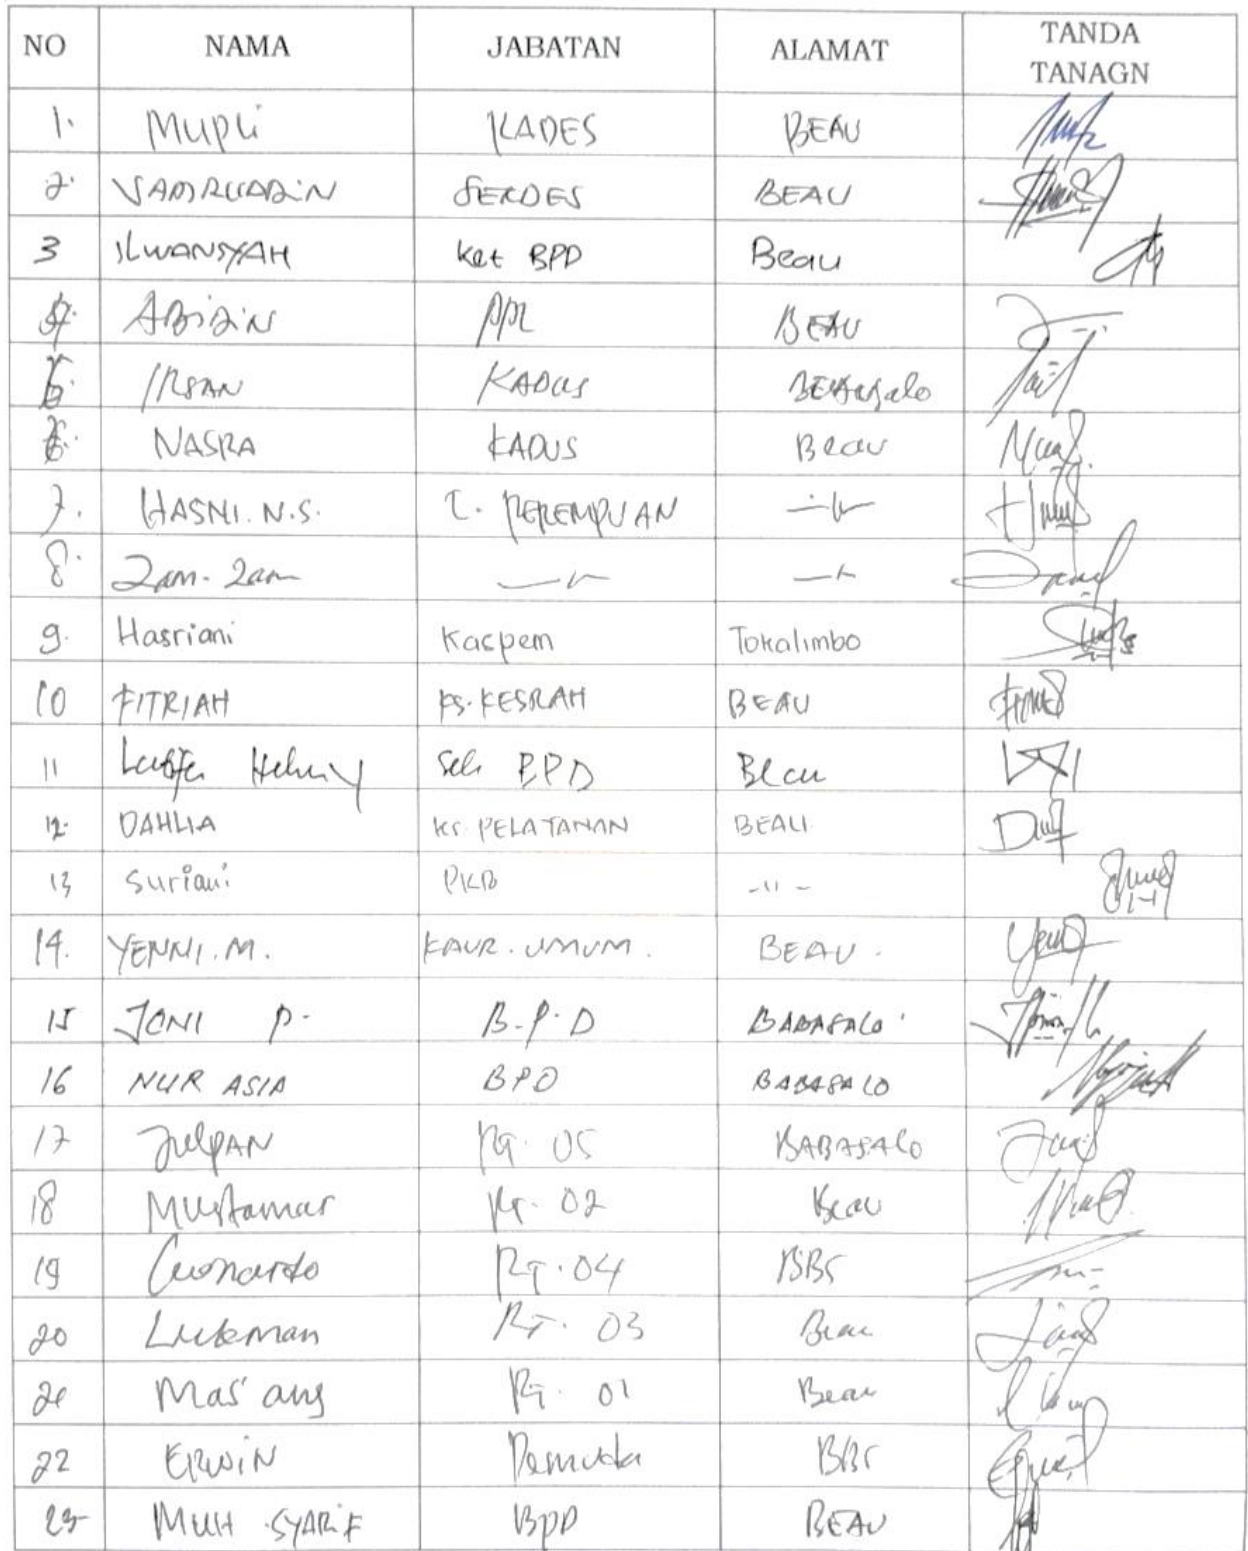 NO NAMA JABATAN ALAMAT TANDA TANAGN
1. Mupli KADES BEAU
2. SAMRUDDIN SEKDES BEAU
3 ILWANSYAH Ket BPD Beau
4. ABiDiN PPL BEAU
5. IRSAN KADUS
6. NASRA KADUS Beau
7. HASNI. N.S. T. PEREMPUAN -"-
8. Zam-Zam -"- -"-
9. Hasriani Kaspem Tokalimbo
10 FITRIAH KS. KESRAH BEAU
11 Sek BPD Beau
12. DAHLIA KS. PELAYANAN BEAU
13 Suriani PKB -"-
14. YENNI. M. KAUR. UMUM. BEAU.
15 JONI P. B.P.D BABASALO
16 NUR ASIA BPD BABASALO
17 JulPAN RT. 05 BABASALO
18 Mustamar RT. 02 Beau
19 Leonardo RT. 04 BBS
20 Lukman RT. 03 Beau
21 Mas'ang RT. 01 Beau
22 ERWiN Pemuda BBS
23 MUH. SYARiF BPD BEAU